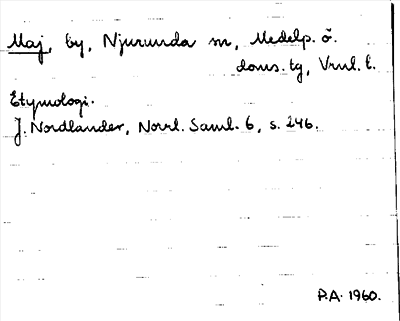 Maj, by, Njurunda sn, Medelp. ö.
doms. tg, Vrnl. l.
Etymologi.
J. Nordlander, Norrl. Saml. 6, s. 246.
P.A. 1960.